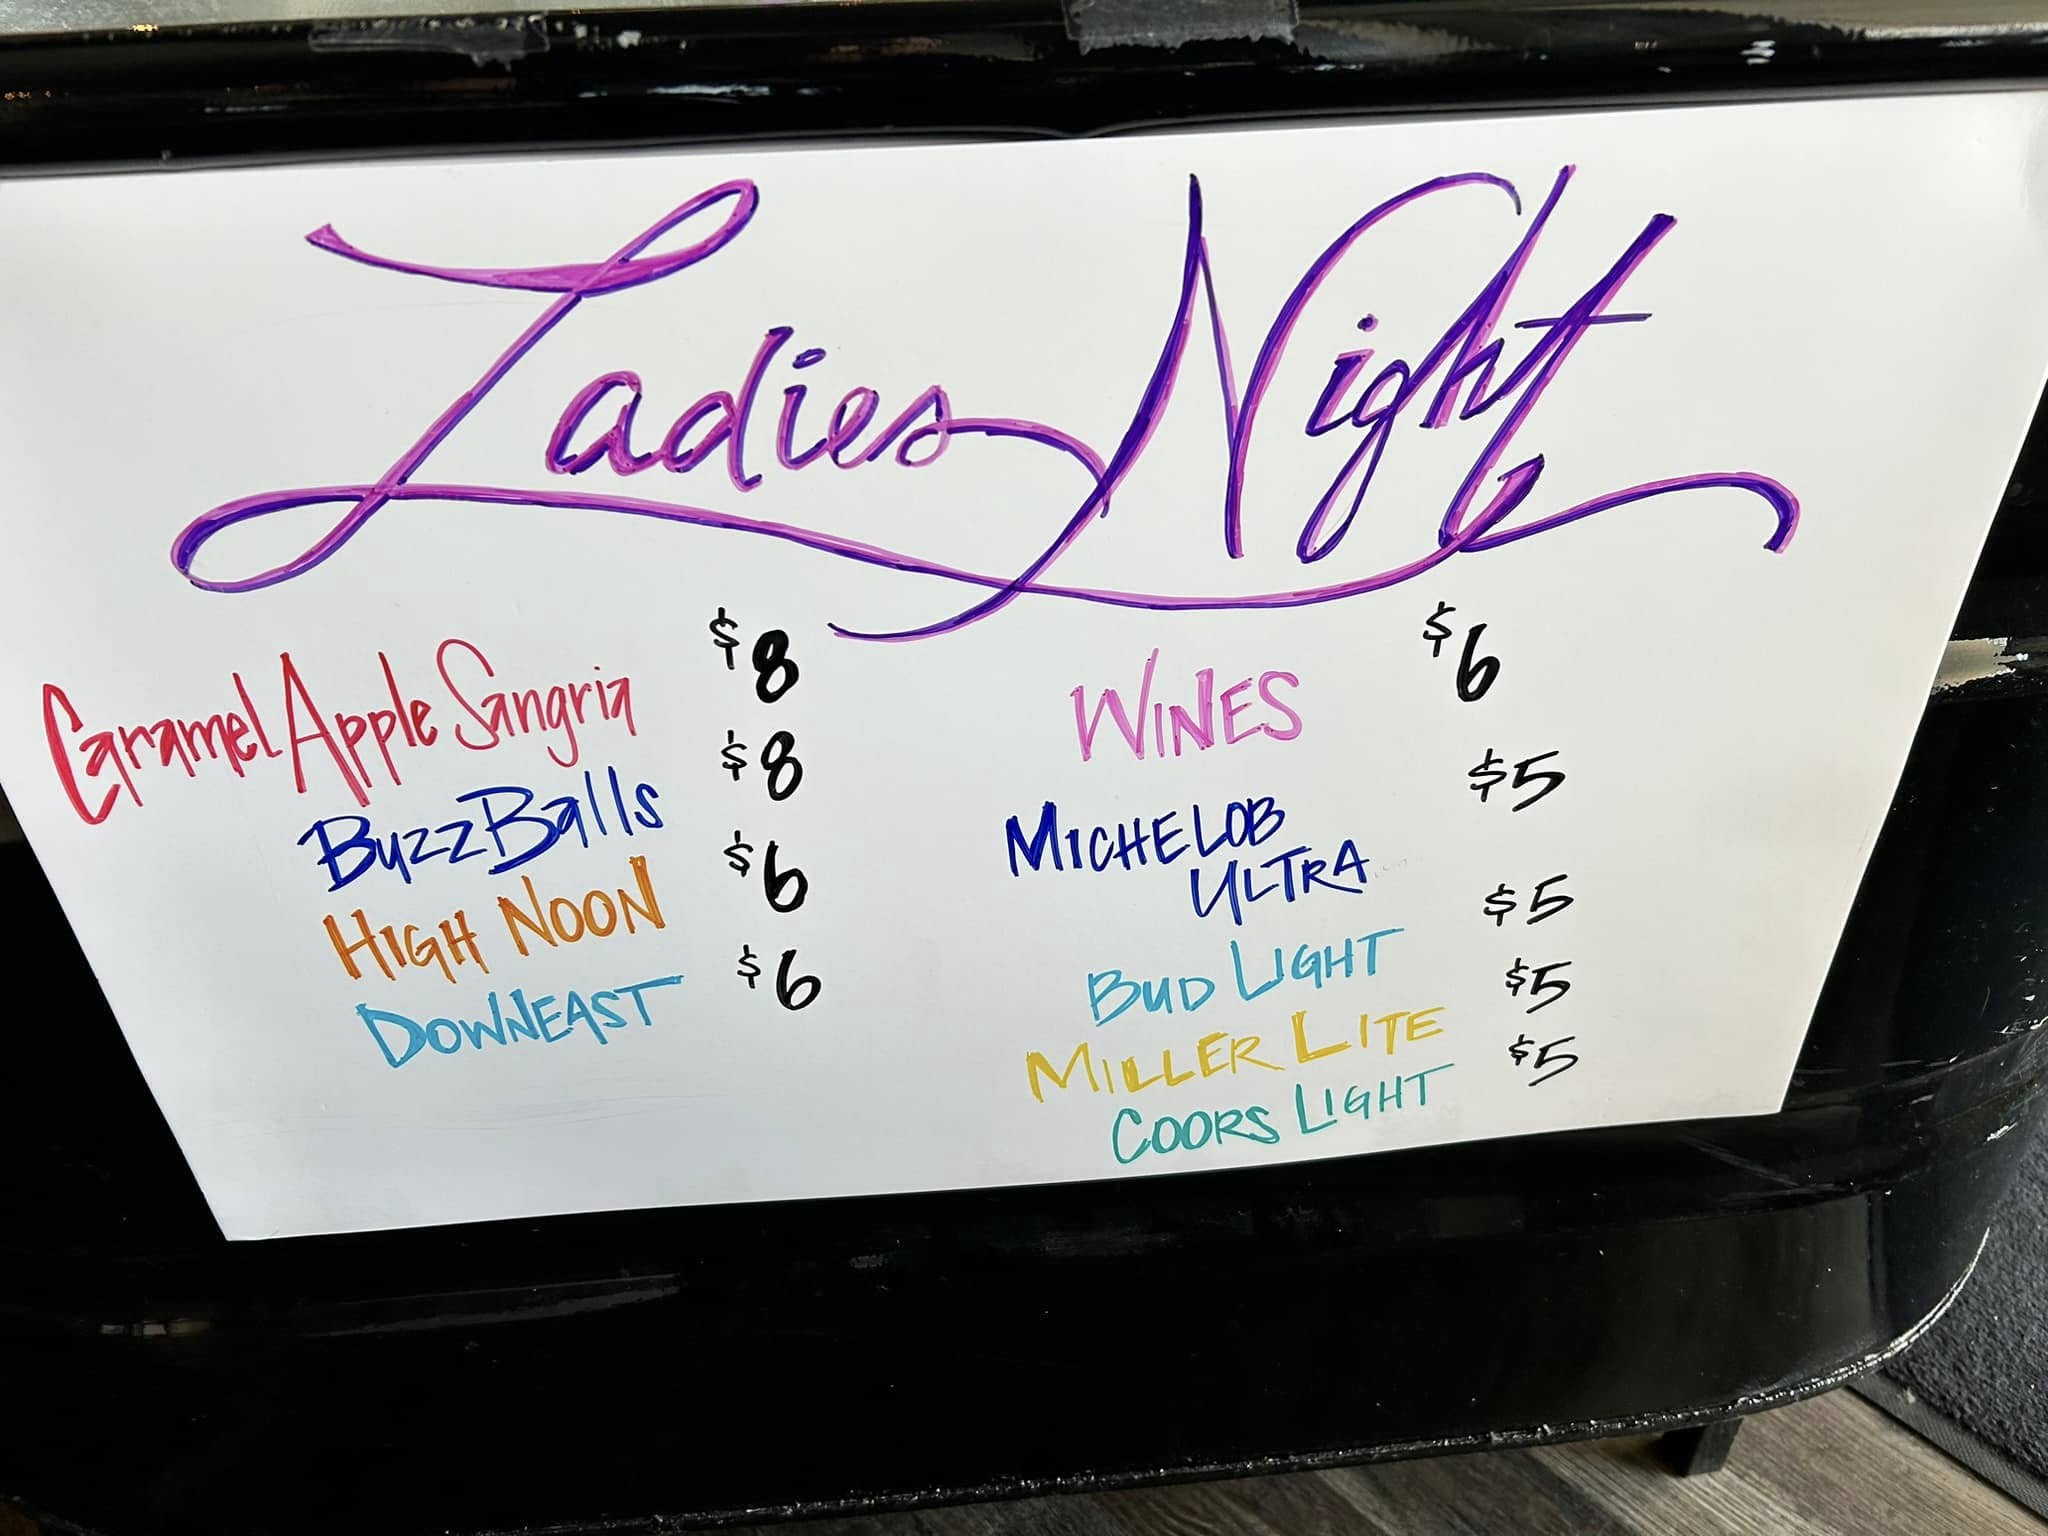 Ladies Night
Caramel Apple Sangria $8
BuzzBalls $8
HIGH NOON $6
DOWNEAST $6
WINES $6
MICHELOB $5
ULTRA
BUD LIGHT $5
MILLER LITE $5
COORS LIGHT $5